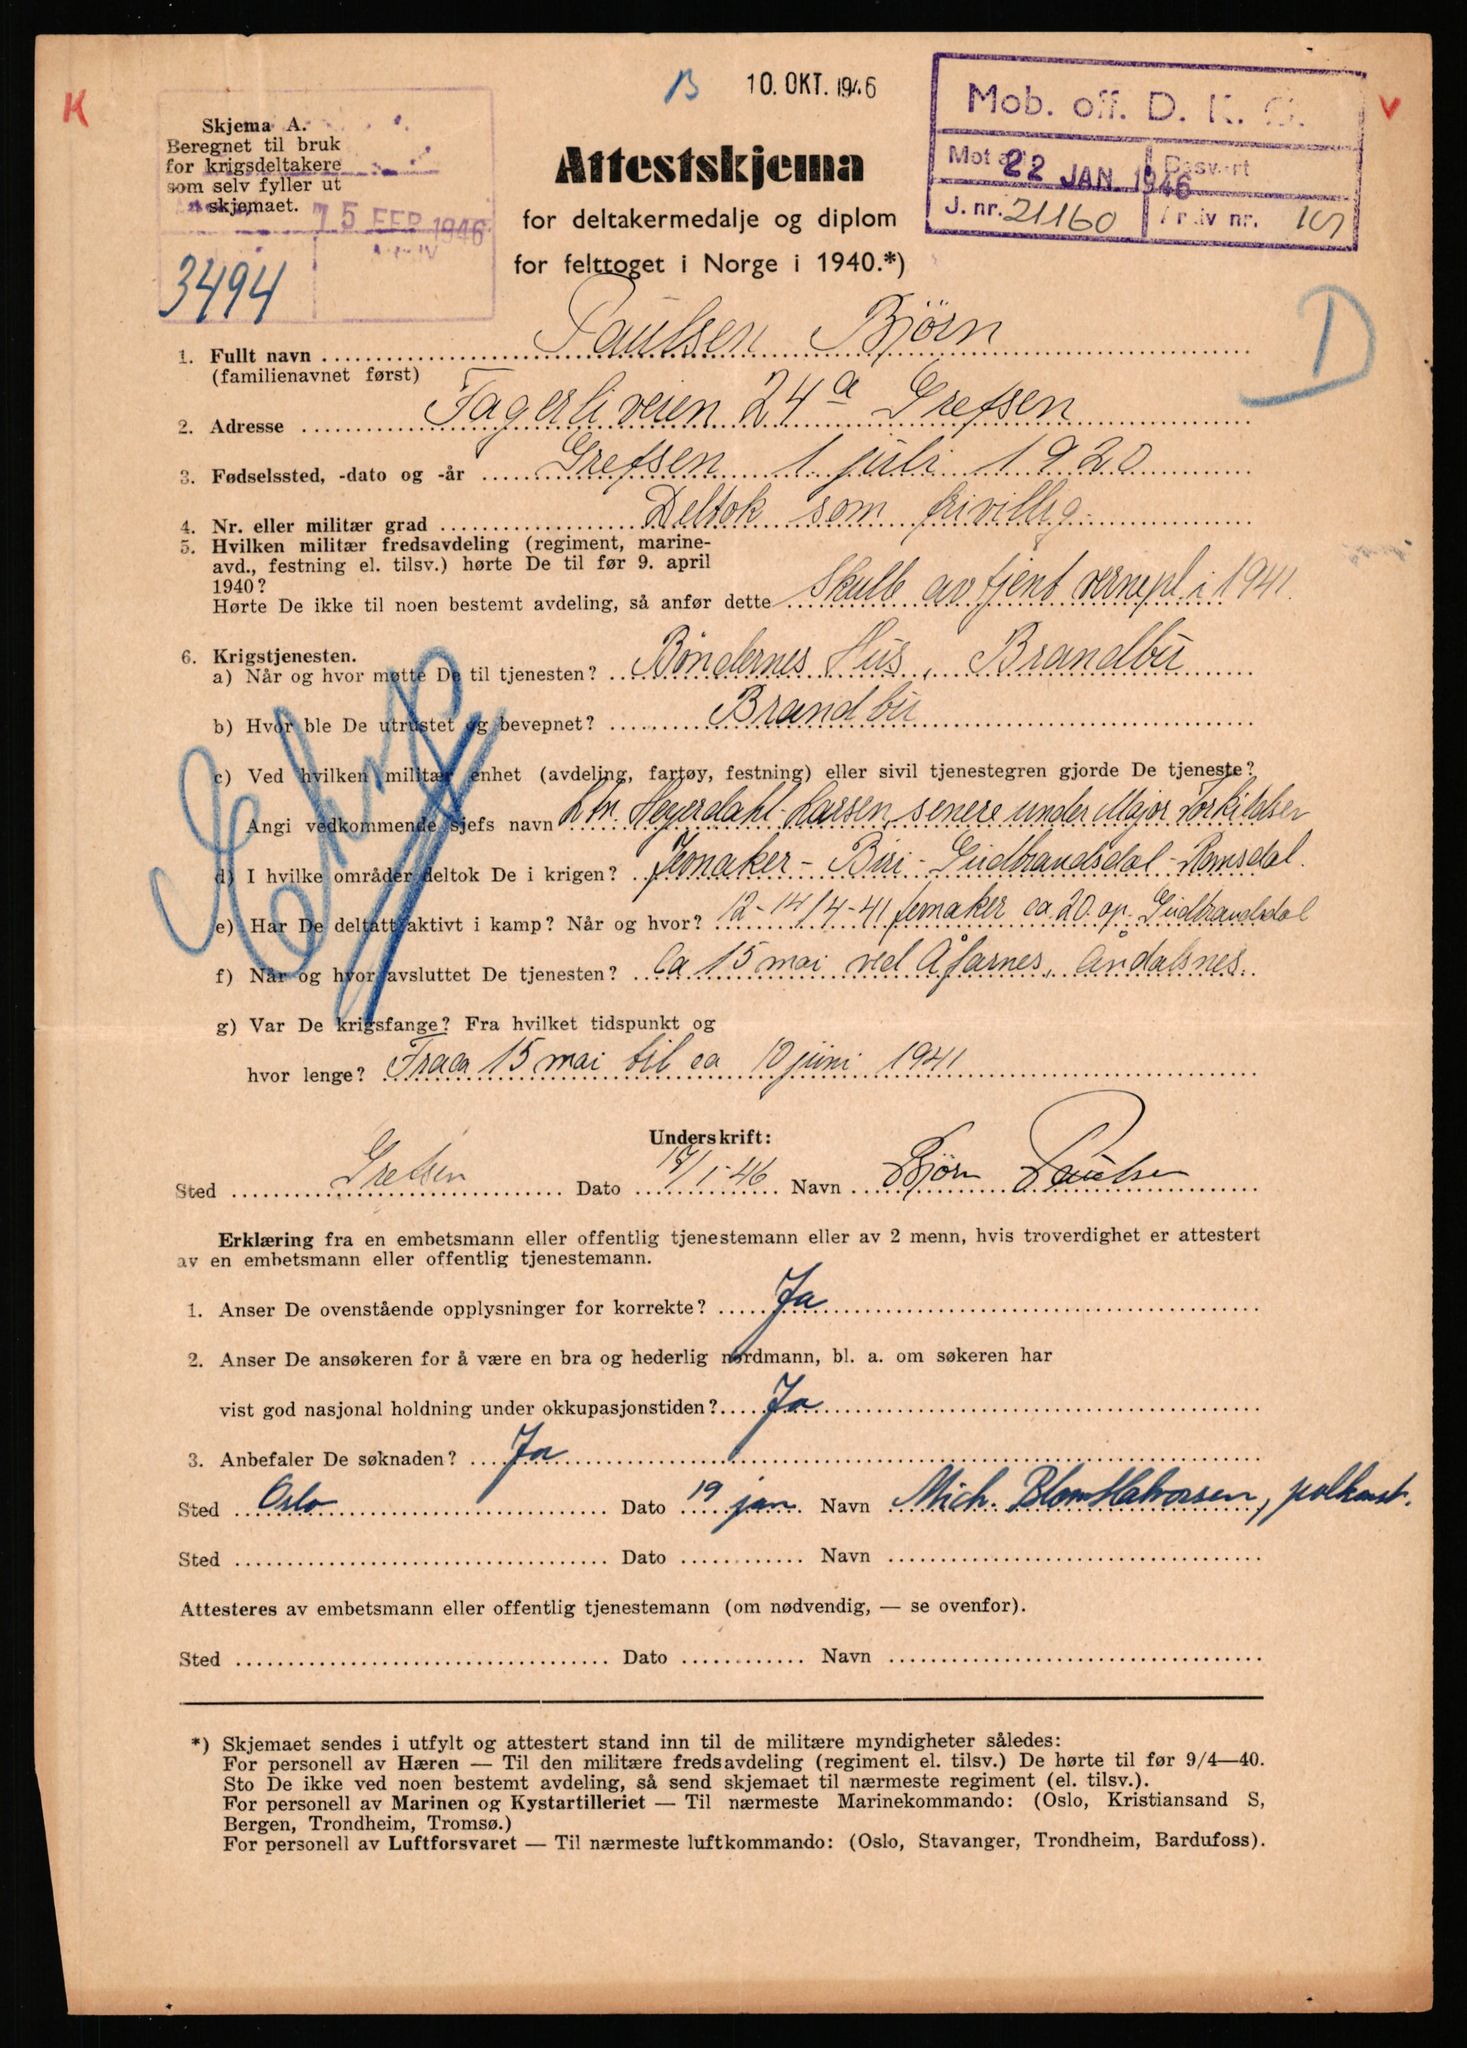 K
B 10. OKT. 1946
V
Mob. off. D. K. O.
Mot att 22 JAN 1946 Besvart
J. nr. 21160 Arkiv nr.
Skjema A.
Beregnet til bruk
for krigsdeltakere
som selv fyller ut
skjemaet.
15 FEB 1946
3494
Attestskjema
for deltakermedalje og diplom
for felttoget i Norge i 1940.*)
D
1. Fullt navn Paulsen Bjørn
(familienavnet først)
2. Adresse Fagerliveien 24a Grefsen
3. Fødselssted, -dato og -år Grefsen 1 juli 1920
4. Nr. eller militær grad Deltok som frivillig.
5. Hvilken militær fredsavdeling (regiment, marine-
avd., festning el. tilsv.) hørte De til før 9. april
1940?
Hørte De ikke til noen bestemt avdeling, så anfør dette Skulle avtjent vernepl. i 1941.
6. Krigstjenesten.
a) Når og hvor møtte De til tjenesten? Bøndernes Hus, Brandbu
b) Hvor ble De utrustet og bevepnet? Brandbu
c) Ved hvilken militær enhet (avdeling, fartøy, festning) eller sivil tjenestegren gjorde De tjeneste?
Angi vedkommende sjefs navn Ltn. Heyerdahl-Larsen, senere under Major Torkildsen
d) I hvilke områder deltok De i krigen? Jevnaker - Biri - Gudbrandsdal - Romsdal.
e) Har De deltatt aktivt i kamp? Når og hvor? 12-14/4-41 Jevnaker ca. 20. ap. Gudbrandsdal
f) Når og hvor avsluttet De tjenesten? Ca 15 mai ved Åfarnes, Åndalsnes.
g) Var De krigsfange? Fra hvilket tidspunkt og
hvor lenge? Fra ca 15 mai til ca 10 juni 1941
Underskrift:
Sted Grefsen Dato 17/1-46 Navn Bjørn Paulsen
Erklæring fra en embetsmann eller offentlig tjenestemann eller av 2 menn, hvis troverdighet er attestert
av en embetsmann eller offentlig tjenestemann.
1. Anser De ovenstående opplysninger for korrekte? Ja
2. Anser De ansøkeren for å være en bra og hederlig nordmann, bl. a. om søkeren har
vist god nasjonal holdning under okkupasjonstiden? Ja
3. Anbefaler De søknaden? Ja
Sted Oslo Dato 19 jan Navn Mich. Blom Halvorsen, polkonst.
Sted Dato Navn
Attesteres av embetsmann eller offentlig tjenestemann (om nødvendig, — se ovenfor).
Sted Dato Navn
*) Skjemaet sendes i utfylt og attestert stand inn til de militære myndigheter således:
For personell av Hæren — Til den militære fredsavdeling (regiment el. tilsv.) De hørte til før 9/4—40.
Sto De ikke ved noen bestemt avdeling, så send skjemaet til nærmeste regiment (el. tilsv.).
For personell av Marinen og Kystartilleriet — Til nærmeste Marinekommando: (Oslo, Kristiansand S,
Bergen, Trondheim, Tromsø.)
For personell av Luftforsvaret — Til nærmeste luftkommando: (Oslo, Stavanger, Trondheim, Bardufoss).